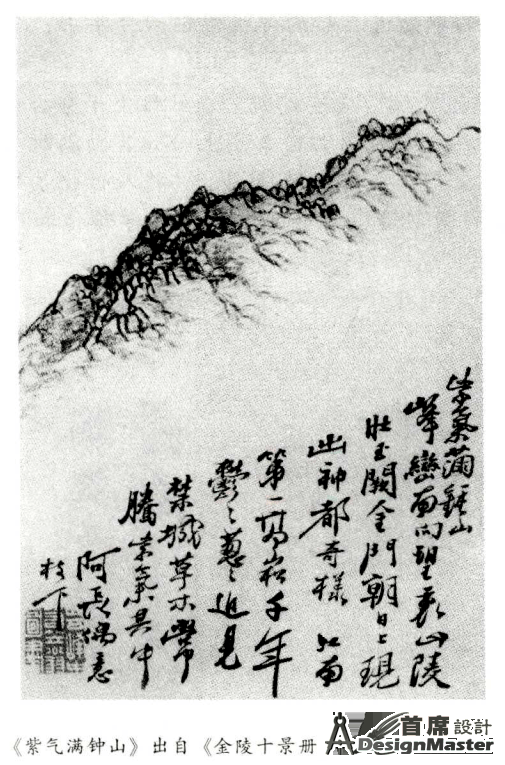 紫氣滿鍾山
峰巒面向望裏山陵
壯玉闕金門朝日上現
出神都奇樣 江南
第一高崧千年
鬱〻蔥〻近見
禁城草木常
騰紫氣其中
阿長偶意
枝下
《紫气满钟山》出自《金陵十景册
首席設計
DesignMaster